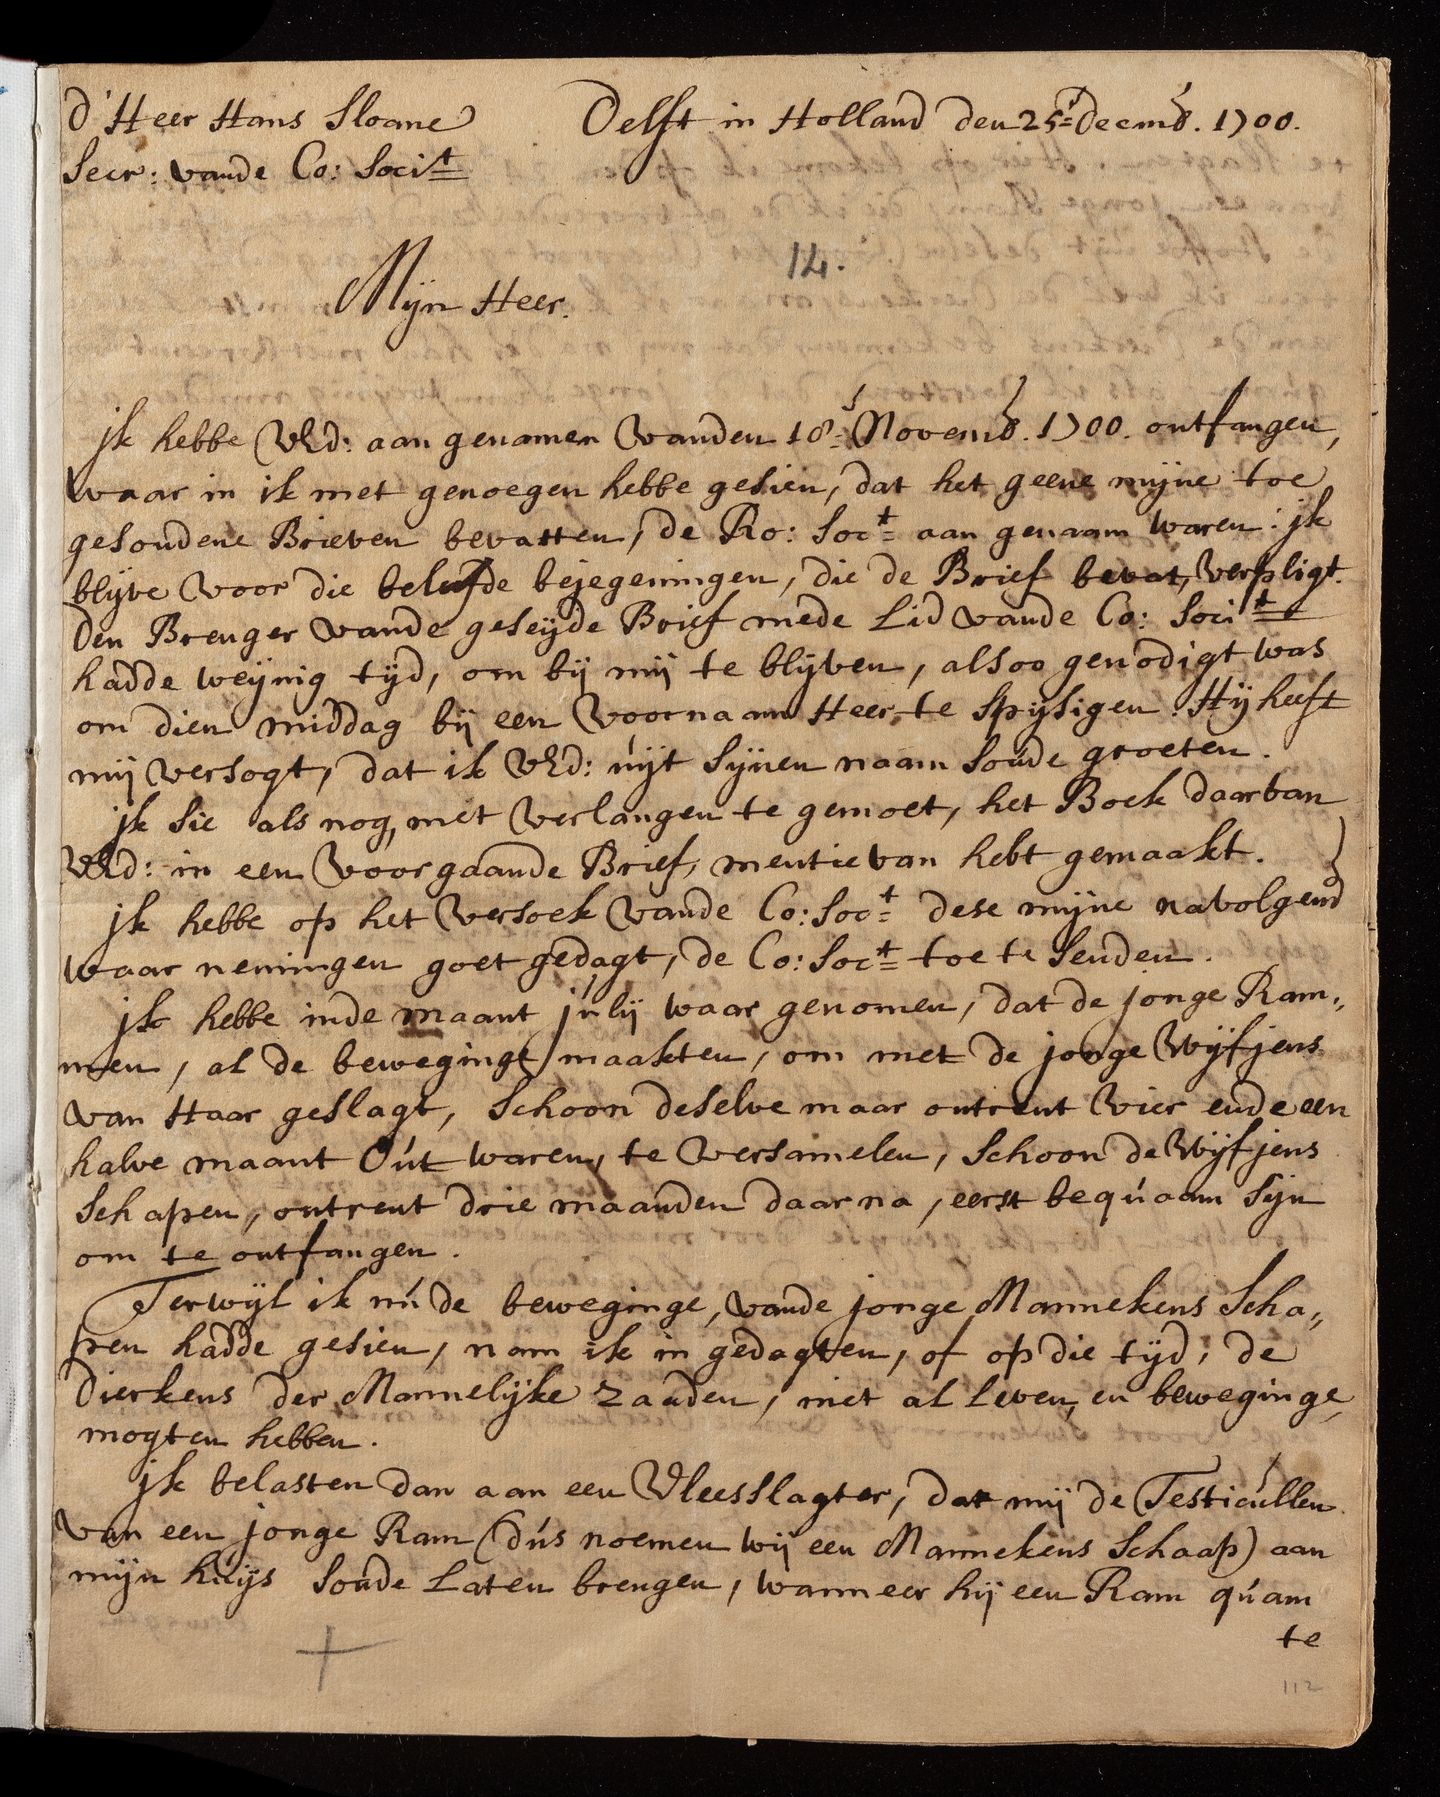 d'Heer Hans Sloane Delft in Holland den 25e Decembr. 1700.
Secr: vande Co: Socit
14.
Mijn Heer.
ik hebbe UEd: aan genamen vanden 18e Novembr. 1700. ontfangen,
waar in ik met genoegen hebbe gesien, dat het geene mijne toe
gesondene Brieven bevatten, de Ro: Soct aan genaam waren: ik
blijve voor die beleefde bejegeningen, die de Brief bevat, verpligt.
Den Brenger vande geseijde Brief mede Lid vande Co: Socit
hadde weijnig tijd, om bij mij te blijven, alsoo genodigt was
om dien middag bij een voornaam Heer, te spijsigen. Hij heeft
mij versogt, dat ik UEd: uijt sijnen naam soude groeten.
ik sie als nog, met verlangen te gemoet, het Boek daarvan
UEd: in een voorgaande Brief, mentie van hebt gemaakt.
ik hebbe op het versoek vande Co: Soct dese mijne navolgend
waar nemingen goet gedagt, de Co: Soct toe te senden.
ik hebbe inde maant julij waar genomen, dat de jonge Ram,,
men, al de beweginge maakten, om met de jonge Wijfjens
van Haar geslagt, schoon deselve maar ontrent vier ende een
halve maant Out waren, te versamelen, schoon de Wijfjens
schapen, ontrent drie maanden daar na, eerst bequaam sijn
om te ontfangen.
Terwijl ik nu de beweginge, vande jonge Mannekens Scha,,
pen hadde gesien, nam ik in gedagten, of op die tijd, de
Dierkens der Mannelijke zaaden, niet al leven, en beweginge,
mogten hebben.
ik belasten dan aan een Vleesslagter, dat mij de Testicullen
van een jonge Ram (dus noemen wij een Mannekens Schaap) aan
mijn huijs soude laten brengen, wanneer hij een Ram quam
te
112